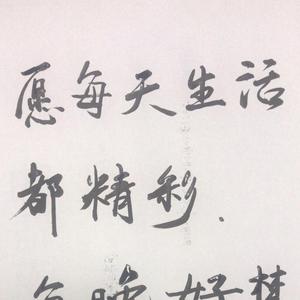 愿每天生活
都精彩.
每晚好梦